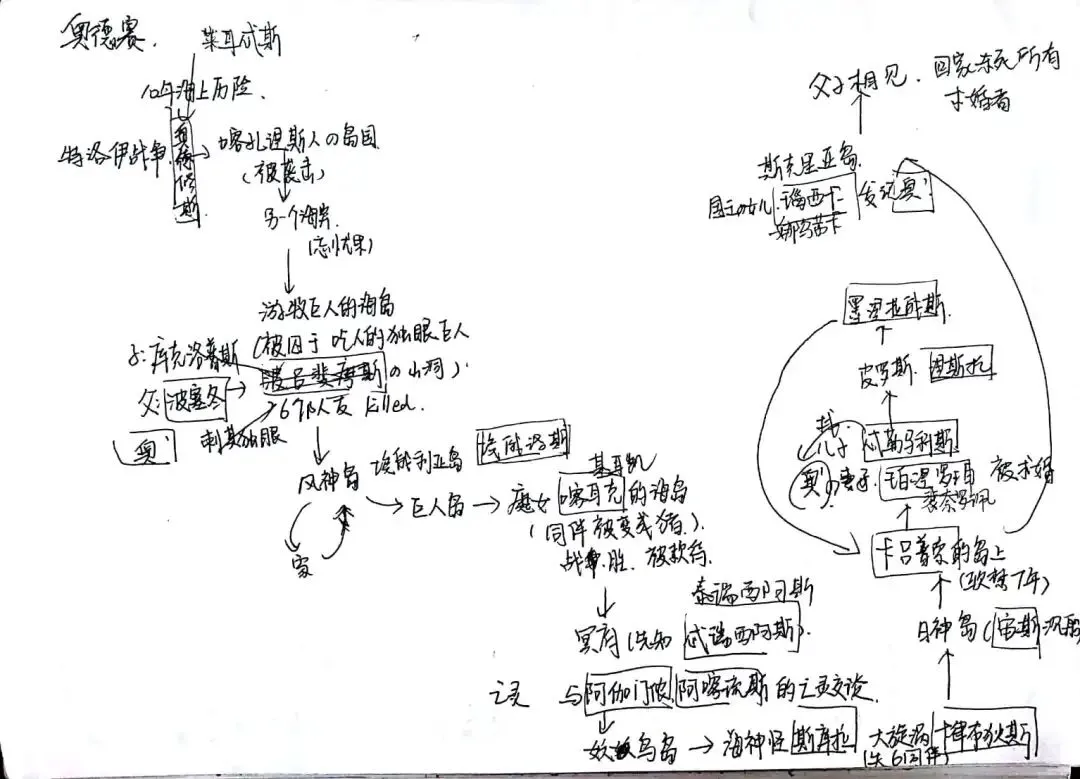 奥德赛.
莱耳忒斯
10年海上历险.
特洛伊战争.
奥德修斯
喀孔涅斯人の岛国
(被袭击)
另一个海岸
(忘忧果)
游牧巨人的海岛
(被囚于吃人的独眼巨人
の山洞)
子:库克洛普斯
父:波塞冬
6个队友 killed.
奥'
刺其独眼
风神岛
埃俄利亚岛
埃俄洛斯
家
巨人岛
魔女喀耳克的海岛
基耳凯
(同伴被变成猪)
战争.胜.被款待.
冥府(先知忒瑞西阿斯).
泰瑞西阿斯
亡灵
与阿伽门侬,阿喀琉斯的亡灵交谈.
妖鸟岛
海神怪斯库拉
大旋涡卡律布狄斯
(失6同伴)
日神岛(宙斯沉船
卡吕普索的岛上
(软禁7年)
奥'の妻子.珀涅罗珀 被求婚
裴奈罗佩
找
儿子
忒勒马科斯
皮罗斯.涅斯托
墨涅拉俄斯.
斯克里亚岛.
国王の女儿.瑙西卡 发现奥'
娜乌茜卡
父子相见.回家杀死所有
求婚者